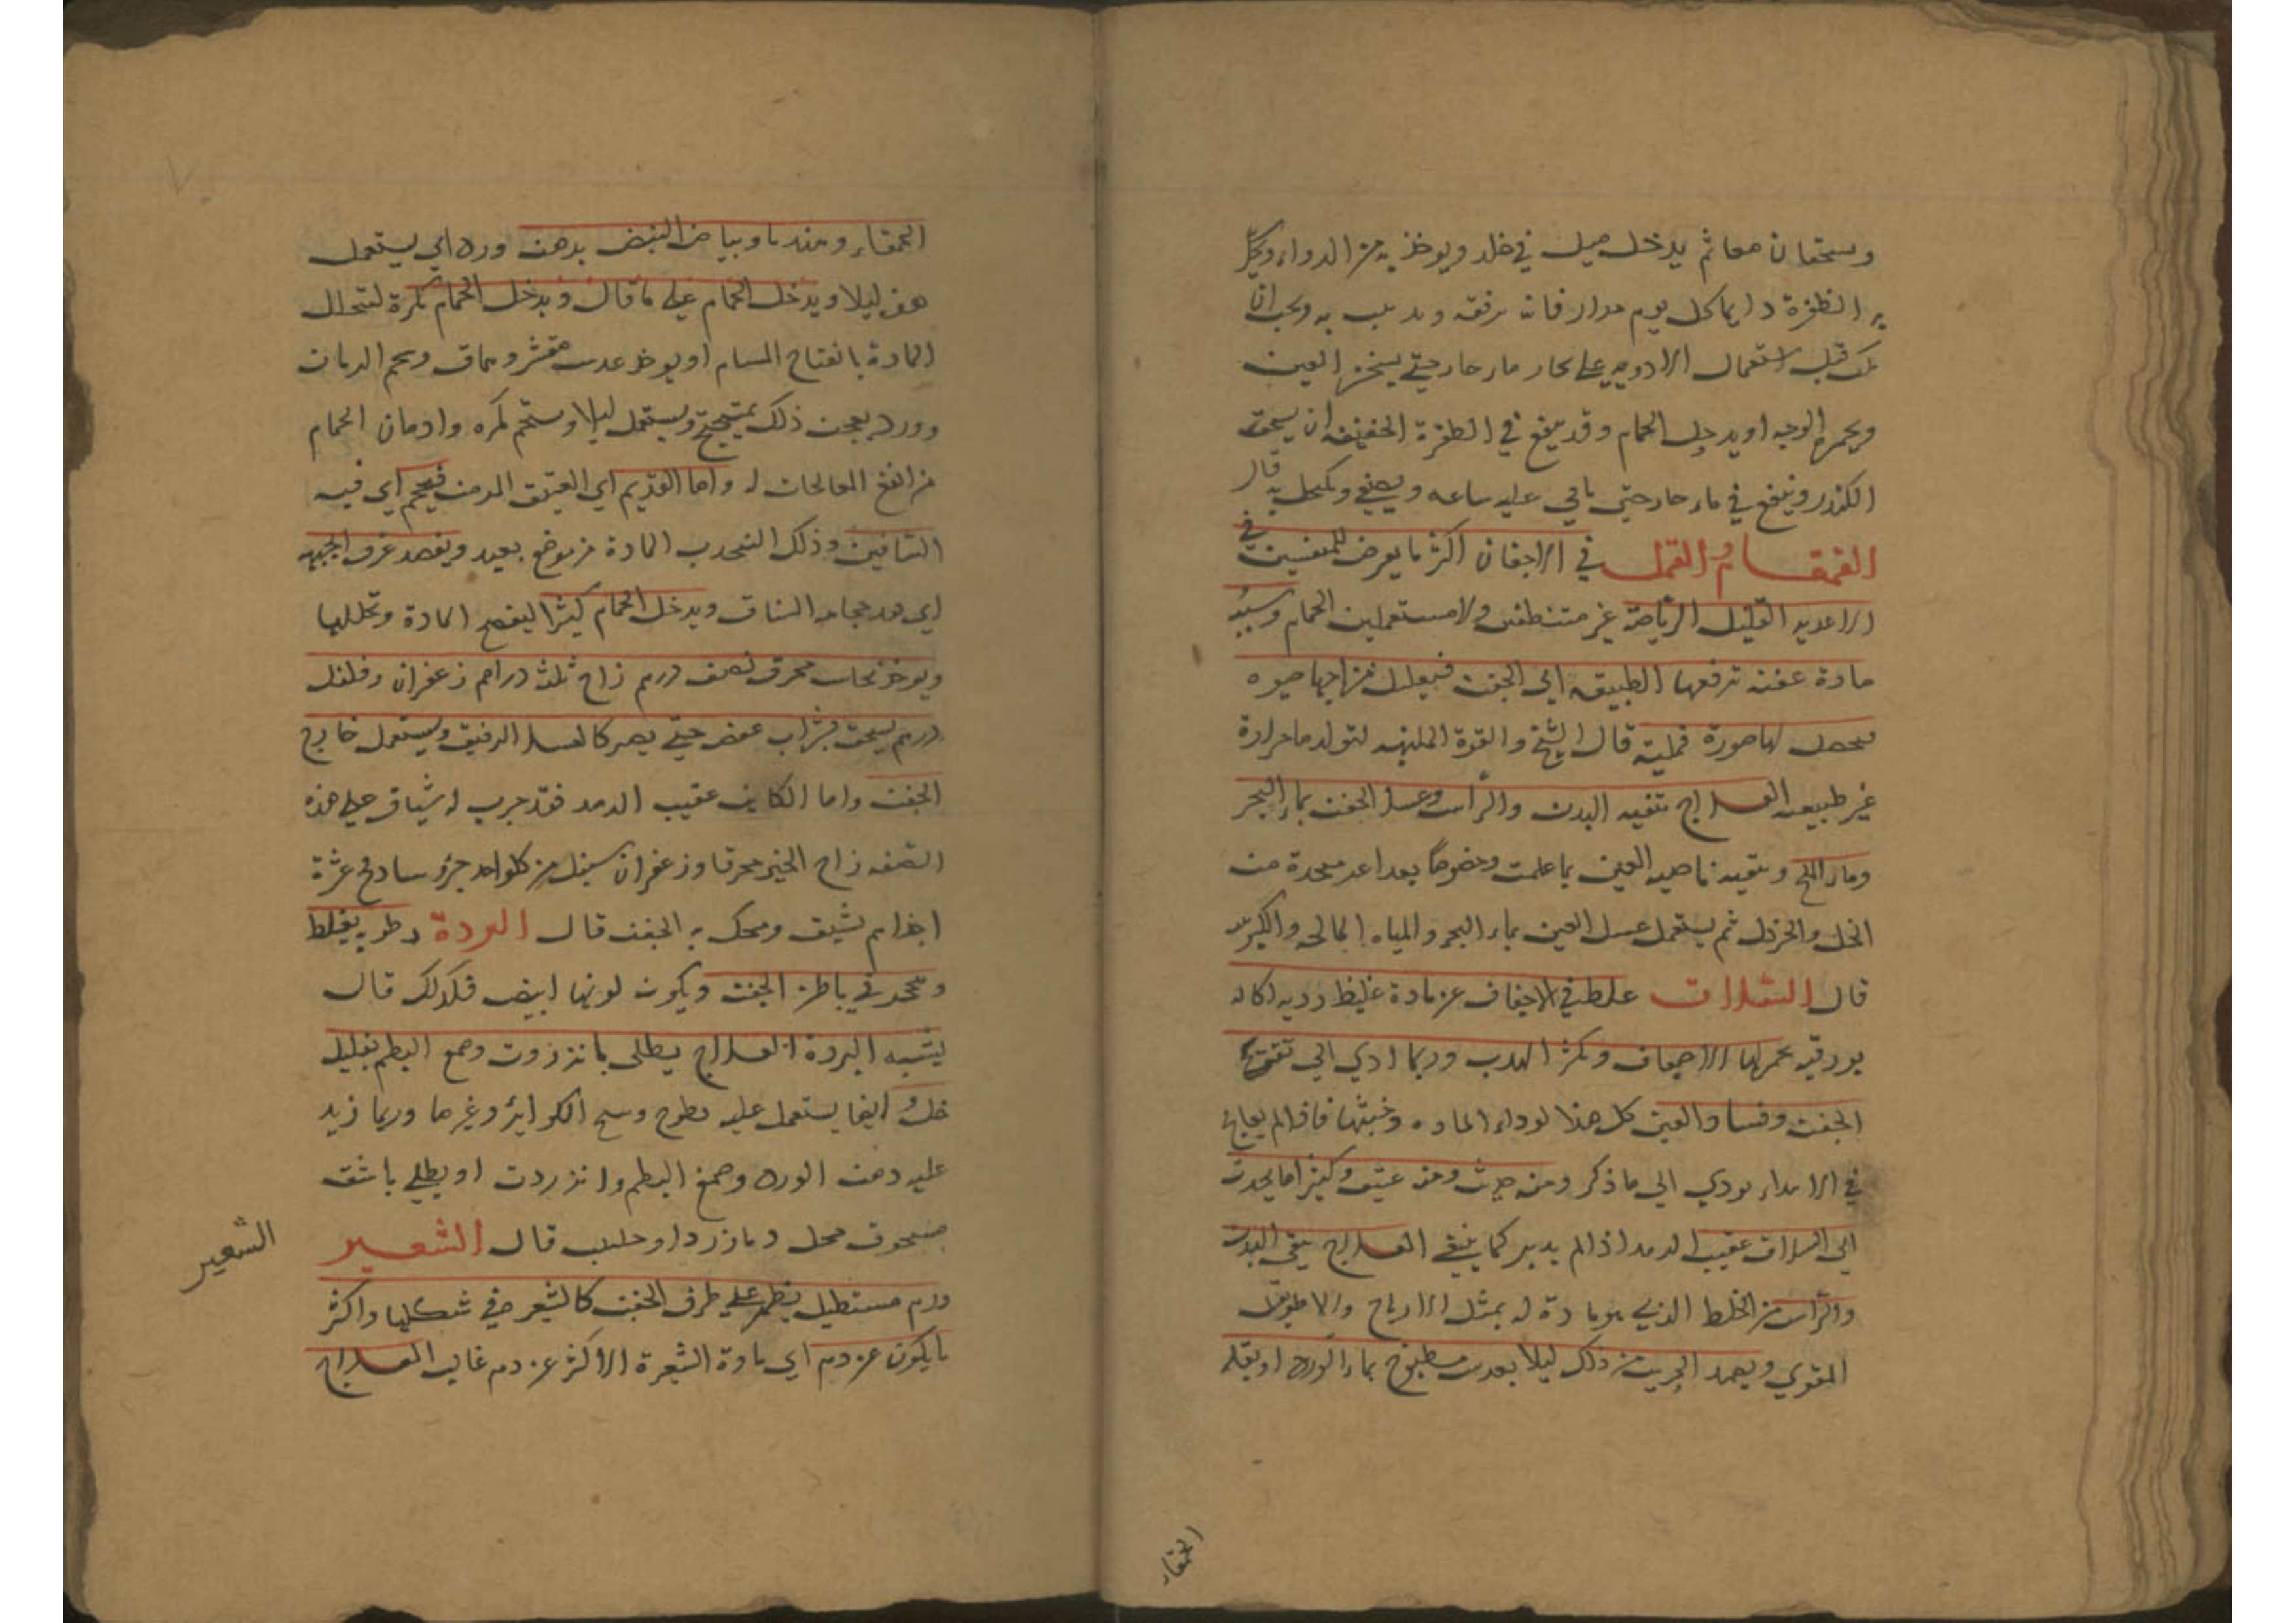 ويسحقان معا ثم يدخل ميل في خلد ويوخذ به من الدواء ويحك
به الظفرة دايما كل يوم مرار فانه يرفقه ويذيب به ويجب ان
يكب قبل استعمال الادويه على بخار ماء حار حتى يسخن العين
ويحمر الوجه او يدخل الحمام وقد ينفع في الظفرة الخفيفه ان يسحق
الكندر وينقع في ماء حار حتى ياتي عليه ساعه ويصفى ويكتحل به قال
القمقام والقمل في الاجفان اكثر ما يعرض للمتفنين في
الاغذيه القليل الرياضة غير متنظفين ولا مستعملين الحمام وسببه
مادة عفنه ترفعها الطبيعه الى الجفن فيقبل مزاجها حيوه
فيحصل لها صورة قملية قال الشيخ والقوة المليئه لتولدها حرارة
غير طبيعيه العلاج تنقيه البدن والراس وغسل الجفن بماء البحر
وماء الملح وتنقيه ناحيه العين بما علمت وخصوصا بغراغر متخذة من
الخل والخردل ثم يستعمل غسل العين بماء البحر والمياه المالحه والكبريتيه
قال السلاق غلظ في الاجفان عن مادة غليظ رديه اكاله
بورقيه يحمر لها الاجفان وينثر الهدب وربما ادي الي تقرح
الجفن وفساد العين كل هذا لرداء الماده وخبثها فاذا لم يعالج
في الابتداء يودي الي ما ذكر ومنه حديث ومنه عتيق وكثيرا ما يحدث
اي السلاق عقيب الرمد اذا لم يدبر كما ينبغي العلاج ينقي البدن
والراس من الخلط الذي هو مادة له بمثل الايارج والاطريفل
المقوي ويضمد الجريب من ذلك ليلا بعدس مطبوخ بماء الورد او بقلة
الحمقاء
الحمقاء وهندبا وبياض البيض بدهن ورد اي يستعمل
هذه ليلا ويدخل الحمام علي ما قال ويدخل الحمام بكرة لتتحلل
المادة بانفتاح المسام او يوخذ عدس مقشر وسماق وشحم الرمان
وورد يعجن ذلك بميبختج ويستعمل ليلا ويستحم بكره وادمان الحمام
من انفع المعالجات له واما القديم اي العتيق المزمن فيحجم اي فيه
الساقين وذلك لتنجذب المادة من موضع بعيد ويفصد عرق الجبهه
اي بعد حجامه الساق ويدخل الحمام كثيرا لينضج المادة وتحللها
ويوخذ نحاس محرق نصف درهم زاج ثلث دراهم زعفران وفلفل
درهم يسحق بشراب عفص حتي يصير كالعسل الرقيق ويستعمل خارج
الجفن واما الكاين عقيب الرمد فقد جرب له شياف علي هذه
الصفه زاج الحبر محرقا وزعفران سنبل من كل واحد جزؤ سادج عشرة
اجزاء يشيف ويحك به الجفن قال البردة رطوبه يغلظ
وتتحجر في باطن الجفن ويكون لونها ابيض فلذلك قال
يشبه البردة العلاج يطلي بانزروت وصمغ البطم بقليل
خل و ايضا يستعمل عليه لطوخ وسخ الكواير وغيرها وربما زيد
عليه دهن الورد وصمغ البطم وانزروت او يطلي باشق
مسحوق بخل وبازرد او حلتيت قال الشعير
ورم مستطيل يظهر علي طرف الجفن كالشعير في شكلها واكثر
ما يكون عن دم اي مادة الشعيرة الاكثر عن دم غالب العلاج
الشعير